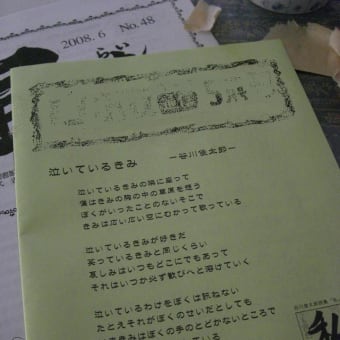 2008.6 No.48
5
泣いているきみ ―谷川俊太郎―
泣いているきみの隣に座って
僕はきみの胸の中の草原を想う
ぼくが行ったことのないそこで
きみは広い広い空にむかって歌っている
泣いているきみが好きだ
笑っているきみと同じくらい
哀しみはいつもどこにでもあって
それはいつか必ず歓びへと溶けていく
泣いているわけをぼくは訊ねない
たとえそれがぼくのせいだとしても
いまきみはぼくの手のとどかないところで